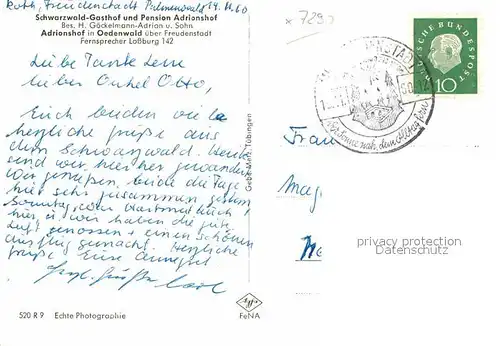 Roth, Freudenstadt Palmenwald 14.11.60
Schwarzwald-Gasthof und Pension Adrionshof
Bes. H. Göckelmann-Adrion u. Sohn
Adrionshof in Oedenwald über Freudenstadt
Fernsprecher Loßburg 142
Liebe Tante Lene
lieber Onkel Otto,
Euch beiden viele
herzliche Grüße aus
dem Schwarzwald. Heute
sind wir hier her gewandert
Wir genießen beide die Tage
hier sehr zusammen, gestern
Sonntag, war Hartmut auch
hier, u. wir haben die gute
Luft genossen + einen schönen
Ausflug gemacht. Herzliche
Grüße Eure Annegret
Herzl. Grüße
520 R 9 Echte Photographie
Gebr. Metz, Tübingen
Agfa
FeNA
7290
DEUTSCHE BUNDESPOST
10
Frau
Mag
privacy protection
Datenschutz